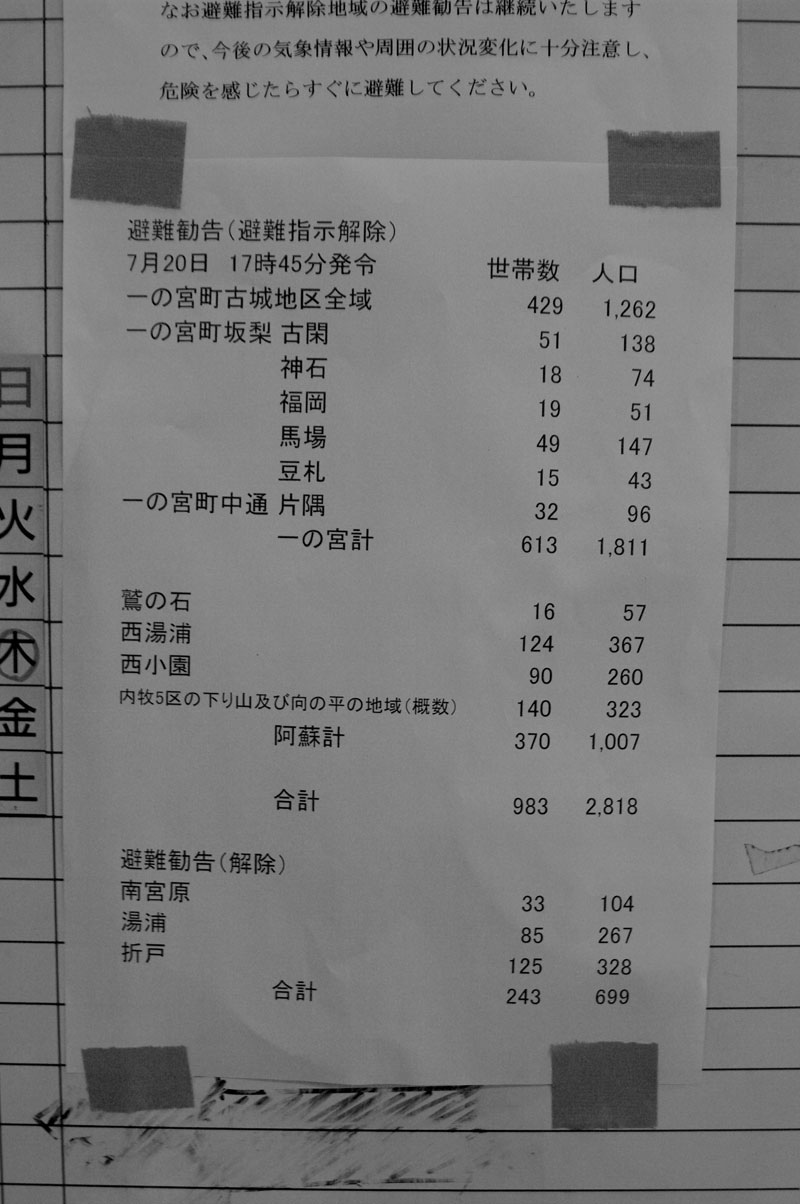 なお避難指示解除地域の避難勧告は継続いたします
ので、今後の気象情報や周囲の状況変化に十分注意し、
危険を感じたらすぐに避難してください。
避難勧告（避難指示解除）
7月20日 17時45分発令 世帯数 人口
一の宮町古城地区全域 429 1,262
一の宮町坂梨 古閑 51 138
神石 18 74
福岡 19 51
馬場 49 147
豆札 15 43
一の宮町中通 片隅 32 96
一の宮計 613 1,811
鷲の石 16 57
西湯浦 124 367
西小園 90 260
内牧5区の下り山及び向の平の地域（概数） 140 323
阿蘇計 370 1,007
合計 983 2,818
避難勧告（解除）
南宮原 33 104
湯浦 85 267
折戸 125 328
合計 243 699
日
月
火
水
木
金
土